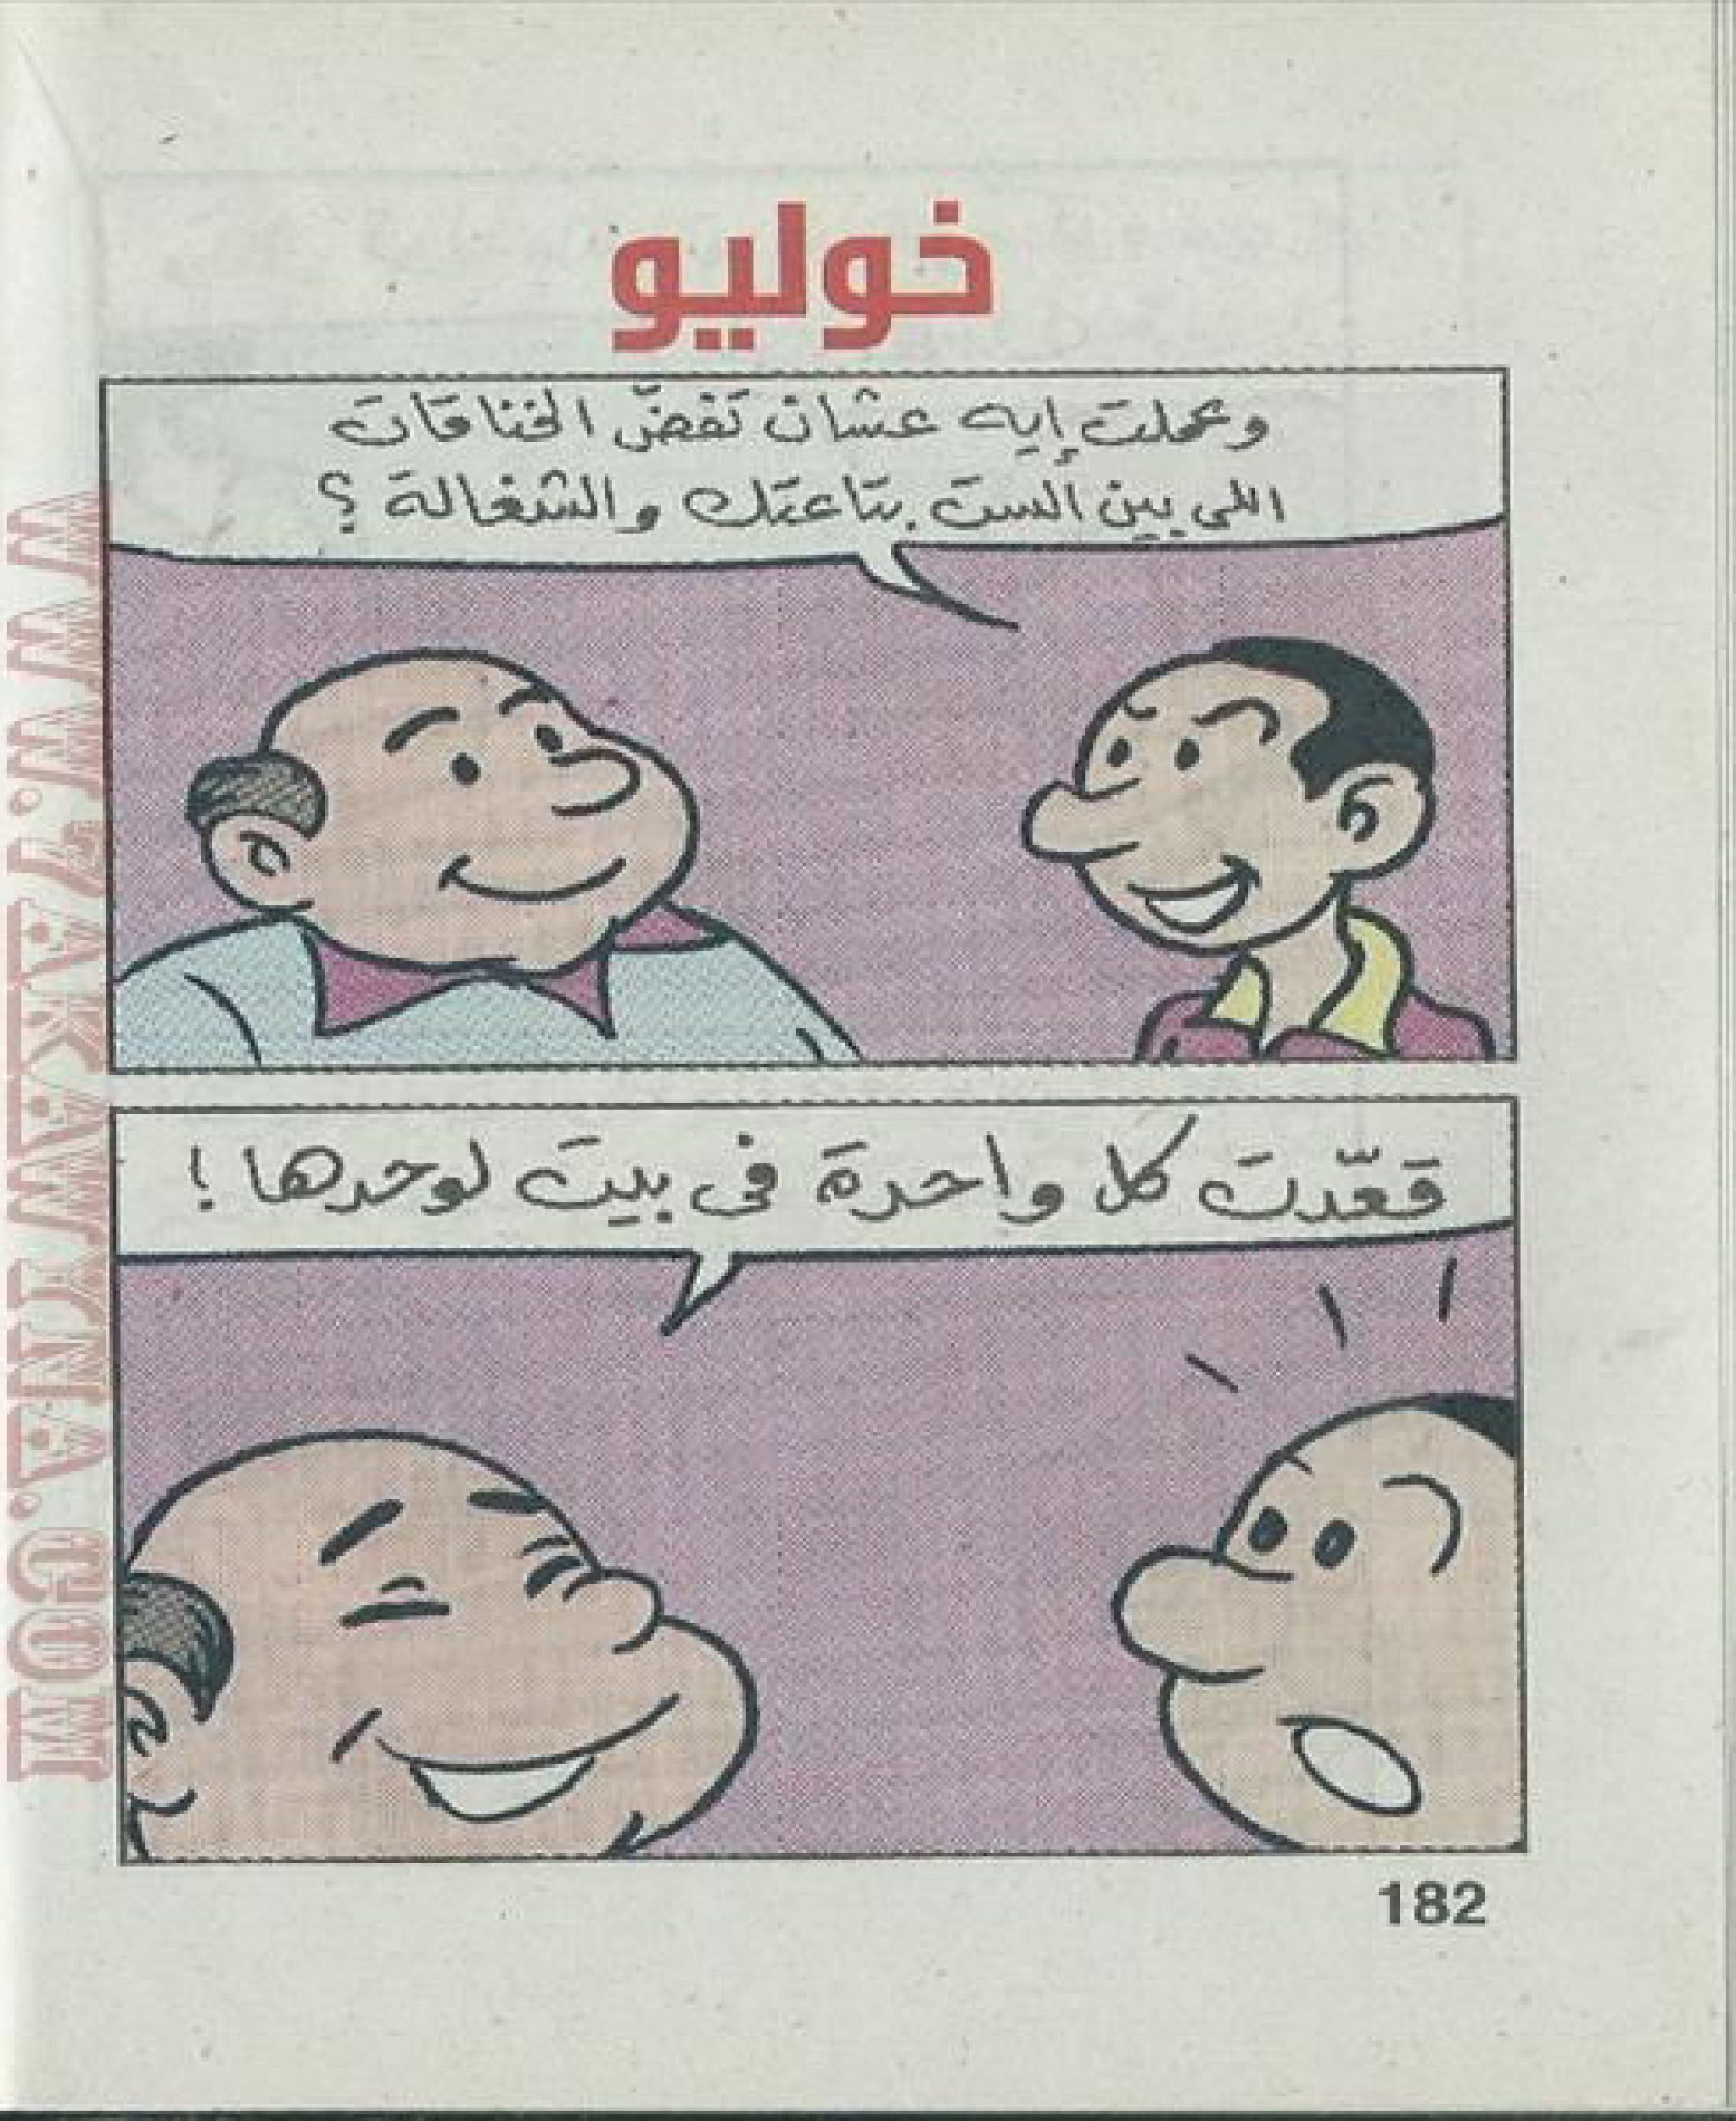 خوليو
وعملت إيه عشان تفضّ الخناقات
اللي بين الست بتاعتك والشغالة ؟
قعّدت كل واحدة فى بيت لوحدها !
182
WWW.7AKAWINA.COM